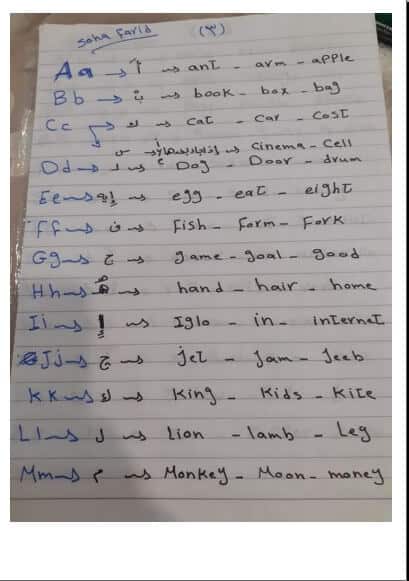 Soha Farid (٣)
Aa → أ → ant - arm - apple
Bb → ب → book - box - bag
Cc → ك → cat - car - cost
س → cinema - cell
Dd → د → Dog - Door - drum
Ee → إيه → egg - eat - eight
Ff → ف → Fish - Form - Fork
Gg → ج → game - goal - good
Hh → هـ → hand - hair - home
Ii → إ → Iglo - in - internet
Jj → ج → jet - Jam - Jeeb
Kk → ك → King - Kids - Kite
Ll → ل → Lion - lamb - Leg
Mm → م → Monkey - Moon - money